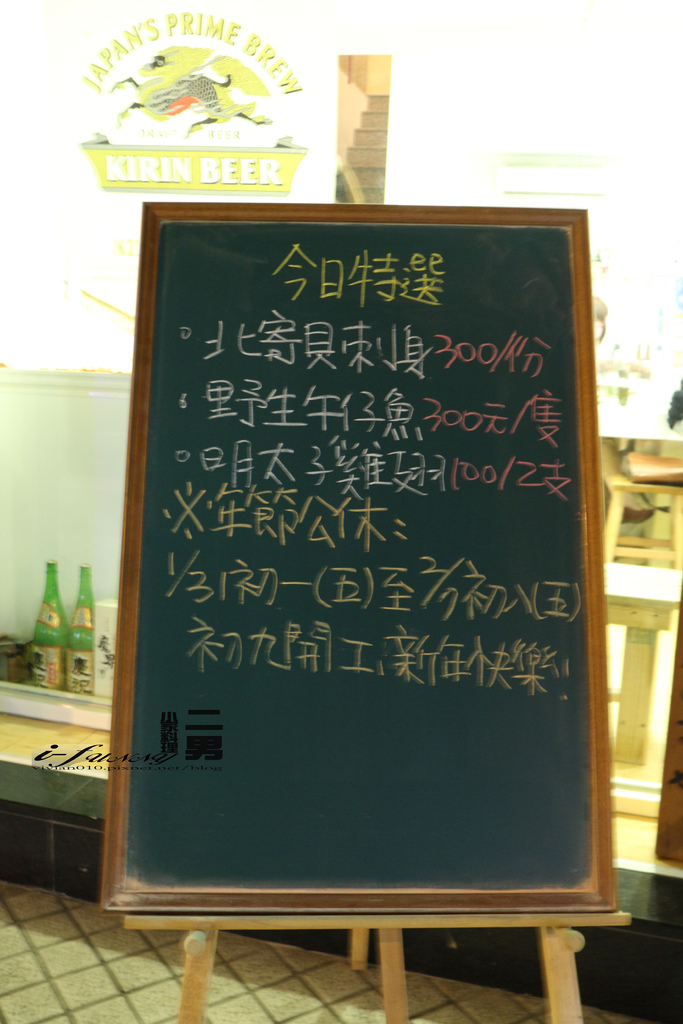 JAPAN'S PRIME BREW
DRAFT BEER
KIRIN BEER
今日特選
。北寄貝刺身300/份
。野生午仔魚300元/隻
。明太子雞翅100/2支
※年節公休:
1/31初一(五)至2/7初八(五)
初九開工,新年快樂!
慶祝
二男
小家料理
i-fanny
eixian010.pixnet.net/blog